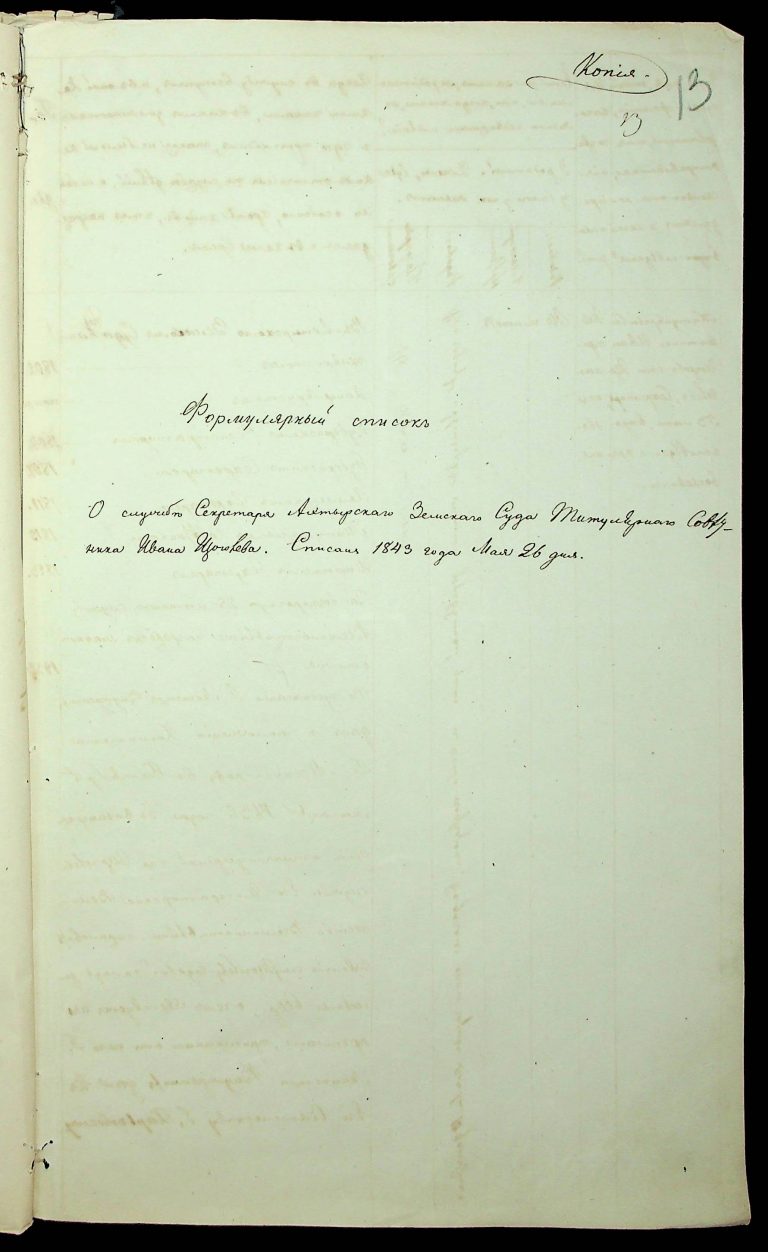 Копія.
13
13
Формулярный списокъ
О службѣ Секретаря Ахтырскаго Земскаго Суда Титулярнаго Совѣт-
ника Ивана. Списанъ 1843 года Мая 26 дня.